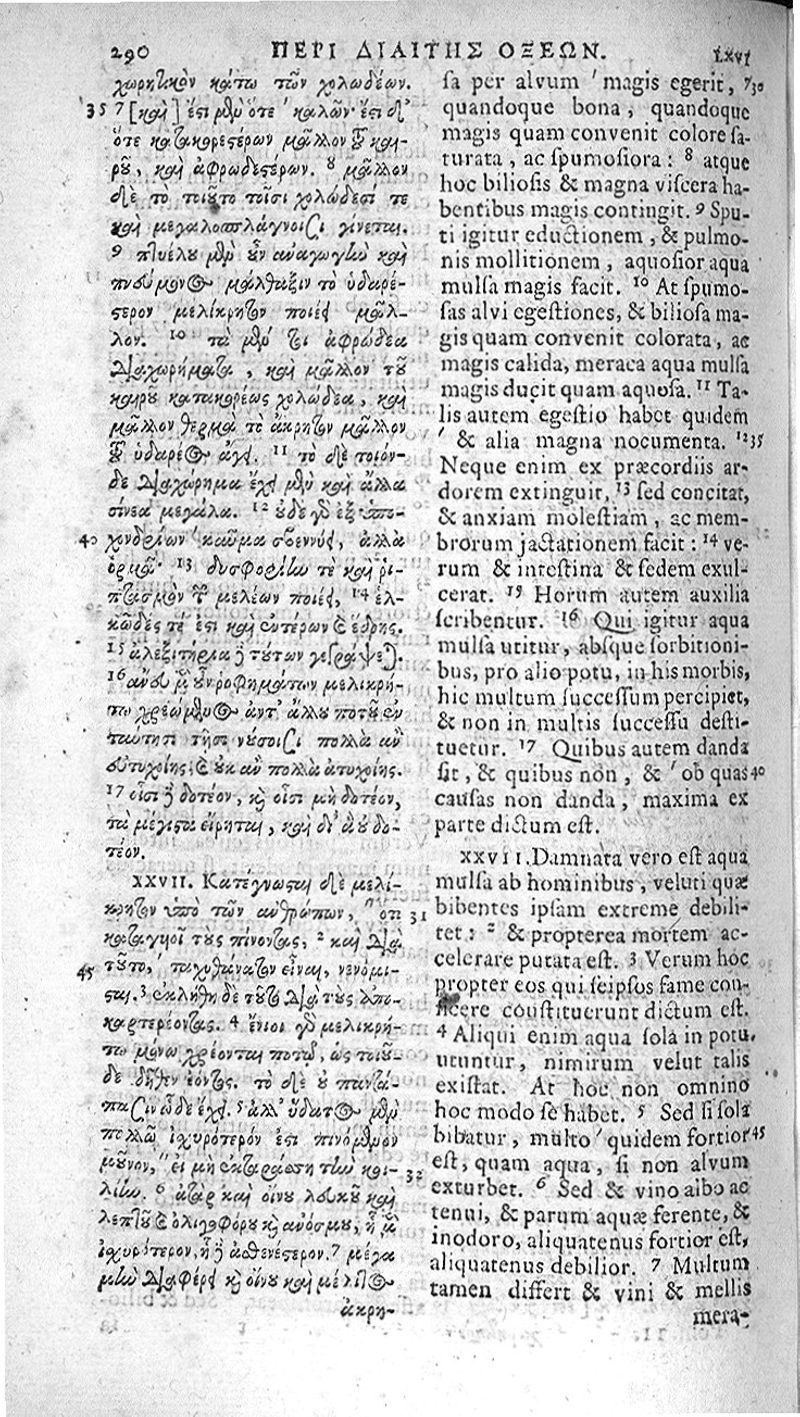 290 ΠΕΡΙ ΔΙΑΙΤΗΣ ΟΞΕΩΝ. lxvi
χωρητικὸν κάτω τῶν χολωδέων.
35 7 [καὶ] ἔστι μὲν ὅτε ʹ καλῶν· ἔστι δʼ
ὅτε κατακορεστέρων μᾶλλον τοῦ και-
ροῦ, καὶ ἀφρωδεστέρων. 8 μᾶλλον
δὲ τὸ τοιοῦτο τοῖσι χολώδεσί τε
καὶ μεγαλοσπλάγχνοισι γίνεται.
9 πτυέλου μὲν οὖν ἀναγωγὴν καὶ
πνεύμονος μάλθαξιν τὸ ὑδαρέ-
στερον μελίκρητον ποιέει μᾶλ-
λον. 10 τὰ μέν τοι ἀφρώδεα
διαχωρήματα, καὶ μᾶλλον τοῦ
καιροῦ κατακορέως χολώδεα, καὶ
μᾶλλον θερμὰ τὸ ἄκρητον μᾶλλον
τοῦ ὑδαρέος ἄγει. 11 τὸ δὲ τοιόν-
δε διαχώρημα ἔχει μὲν καὶ ἄλλα
σίνεα μεγάλα. 12 οὐδὲ γὰρ ἐξ ὑπο-
40 χονδρίων ʹ καῦμα σβεννύει, ἀλλὰ
ὁρμᾷ· 13 δυσφορίην τε καὶ ῥι-
πτασμὸν τῶν μελέων ποιέει, 14 ἑλ-
κῶδές τέ ἐστι καὶ ἐντέρων καὶ ἕδρης.
15 ἀλεξιτήρια δὲ τούτων γεγράψεται.
16 ἄνευ μὲν οὖν ῥοφημάτων μελικρή-
τῳ χρεώμενος ἀντʼ ἄλλου ποτοῦ ἐν
ταύτησι τῇσι νούσοισι πολλὰ ἂν
εὐτυχοίης, καὶ οὐκ ἂν πολλὰ ἀτυχοίης.
17 οἷσι δὲ δοτέον, καὶ οἷσι μὴ δοτέον,
τὰ μέγιστα εἴρηται, καὶ διʼ ἃ οὐ δο-
τέον.
XXVII. Κατέγνωσται δὲ μελί-
κρητον ὑπὸ τῶν ἀνθρώπων, ʺ ὅτι 31
καταγυιοῖ τοὺς πίνοντας, 2 καὶ διὰ
45 τοῦτο, ʹ ταχυθάνατον εἶναι, νενόμι-
σται. 3 ἐκλήθη δὲ τοῦτο διὰ τοὺς ἀπο-
καρτερέοντας. 4 ἔνιοι γὰρ μελικρή-
τῳ μόνῳ χρέονται ποτῷ, ὡς τοιοῦ-
δε δῆθεν ἐόντος. τὸ δὲ οὐ παντά-
πασιν ὧδε ἔχει. 5 ἀλλʼ ὕδατος μὲν
πολλῷ ἰσχυρότερόν ἐστι πινόμενον
μοῦνον, ʺ εἰ μὴ ἐκταράσσῃ τὴν κοι- 32
λίην. 6 ἀτὰρ καὶ οἴνου λευκοῦ καὶ
λεπτοῦ καὶ ὀλιγοφόρου καὶ ἀνόσμου, ᾗ μὲν
ἰσχυρότερον, ᾗ δὲ ἀσθενέστερον. 7 μέγα
μὲν διαφέρει καὶ οἴνου καὶ μέλιτος
ἀκρη-
sa per alvum ʹ magis egerit, 7 30
quandoque bona, quandoque
magis quam convenit colore sa-
turata, ac spumosiora: 8 atque
hoc biliosis & magna viscera ha-
bentibus magis contingit. 9 Spu-
ti igitur eductionem, & pulmo-
nis mollitionem, aquosior aqua
mulsa magis facit. 10 At spumo-
sas alvi egestiones, & biliosa ma-
gis quam convenit colorata, ac
magis calida, meraca aqua mulsa
magis ducit quam aquosa. 11 Ta-
lis autem egestio habet quidem
ʹ & alia magna nocumenta. 12 35
Neque enim ex præcordiis ar-
dorem extinguit, 13 sed concitat,
& anxiam molestiam, ac mem-
brorum jactationem facit: 14 ve-
rum & intestina & sedem exul-
cerat. 15 Horum autem auxilia
scribentur. 16 Qui igitur aqua
mulsa utitur, absque sorbitioni-
bus, pro alio potu, in his morbis,
hic multum successum percipiet,
& non in multis successu desti-
tuetur. 17 Quibus autem danda
sit, & quibus non, & ʹ ob quas 40
causas non danda, maxima ex
parte dictum est.
XXVII. Damnata vero est aqua
mulsa ab hominibus, veluti quæ
bibentes ipsam extreme debili-
tet: 2 & propterea mortem ac-
celerare putata est. 3 Verum hoc
propter eos qui seipsos fame con-
ficere constituerunt dictum est.
4 Aliqui enim aqua sola in potu
utuntur, nimirum velut talis
existat. At hoc non omnino
hoc modo se habet. 5 Sed si sola
bibatur, multo ʹ quidem fortior 45
est, quam aqua, si non alvum
exturbet. 6 Sed & vino albo ac
tenui, & parum aquæ ferente, &
inodoro, aliquatenus fortior est,
aliquatenus debilior. 7 Multum
tamen differt & vini & mellis
mera-